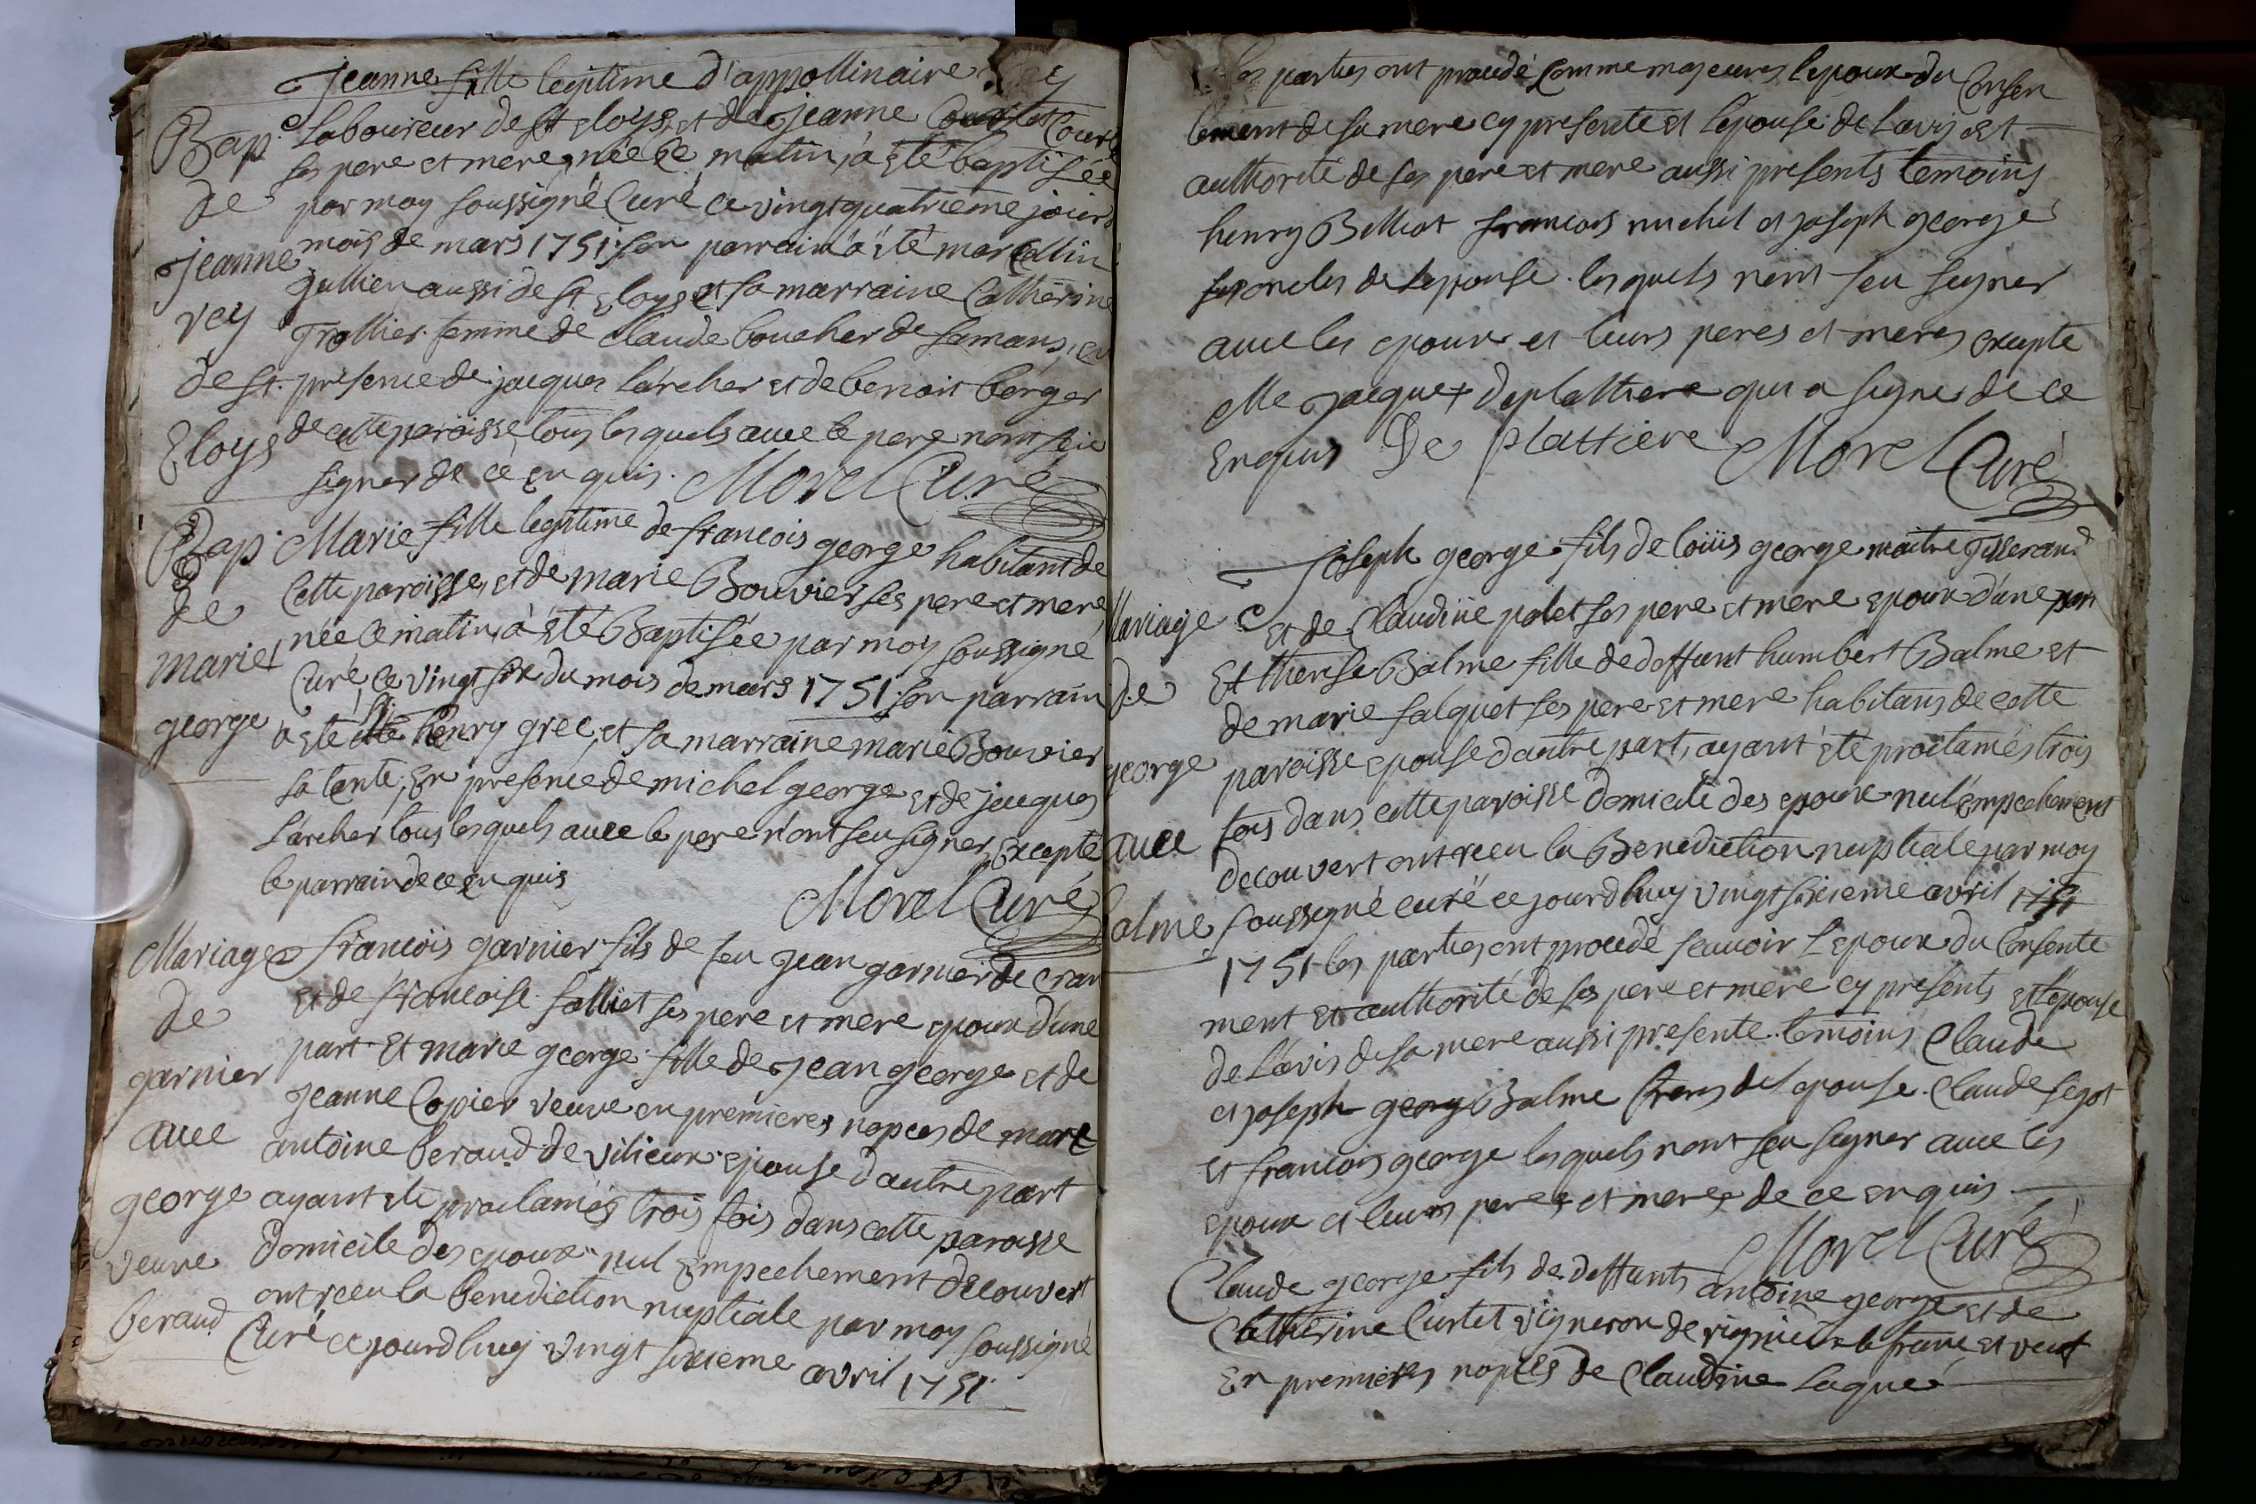 Jeanne fille legitime d'appollinaire vey
Bap. laboureur de st Eloys, et de jeanne Courtet
ses pere et mere, née ce matin, à été baptisée
de par moy soussigné Curé ce vingt quatrieme jour
Jeanne mois de mars 1751. son parrain à été marcellin
vey Jullien aussi de st Eloys et sa marraine Catherine
Trollier femme de Claude boucher de samans, en
de st. presence de jacques larcher et de benoit berger
Eloys de cette paroisse, tous les quels avec le pere n'ont sceu
signer de ce enquis. Morel Curé
Bap. Marie fille legitime de francois george habitant de
de Cette paroisse, et de marie Bouvier ses pere et mere,
née ce matin, à été Baptisée par moy soussigné
marie Curé, ce vingt six du mois de mars 1751. son parrain
george à été henry grec, et sa marraine marie Bouvier
sa tante, En presence de michel george et de jacques
Larcher tous les quels avec le pere n'ont sceu signer, Excepté
le parrain de ce enquis
Morel Curé
Mariage francois garnier fils de feu jean garnier de cran
de et de francoise folliet ses pere et mere epoux d'une
part. Et marie george fille de jean george et de
garnier jeanne Copier veuve en premieres nopces de
avec antoine beraud de vilieux epouse d'autre part
george ayant ete proclamés trois fois dans cette paroisse
veuve domicile des epoux nul empechement decouvert
ont receu la benediction nuptiale par moy soussigné
beraud Curé ce jourdhuy vingt sixieme avril 1751.
les parties ont procedé comme majeures, lepoux du Consen
tement de sa mere cy presente et lepouse de lavis et
authorité de ses pere et mere aussi presents temoins
henry Belliot francois michel et joseph george
ses oncles de lepouse. les quels nont sceu signer
avec les epoux et leurs peres et meres excepté
Me jacque deplattiere qui a signé de ce
enquis De Plattiere Morel Curé
Joseph george fils de loüis george maitre Tisserand
Mariage et de Claudine polet ses pere et mere epoux d'une part
de Et therese Balme fille de deffunt humbert Balme et
de marie falquet ses pere et mere habitans de cette
george paroisse epouse dautre part, ayant été proclamés trois
fois dans cette paroisse domicile des epoux nul Empechement
avec decouvert ont receu la Benediction nuptiale par moy
balme soussigné curé ce jourdhuy vingt sixieme avril 1751
1751 les parties ont procedé scavoir Lepoux du Consente
ment et authorité de ses pere et mere cy presents et lepouse
de lavis de sa mere aussi presente. temoins Claude
et joseph georg Balme freres de lepouse. Claude segot
et francois george les quels nont sceu signer avec les
epoux et leurs peres et meres de ce enquis
Morel Curé
Claude george fils de deffunts antoine george et de
Catherine Curtet vigneron de rignieux le franc et veuf
En premieres nopces de Claudine Lague